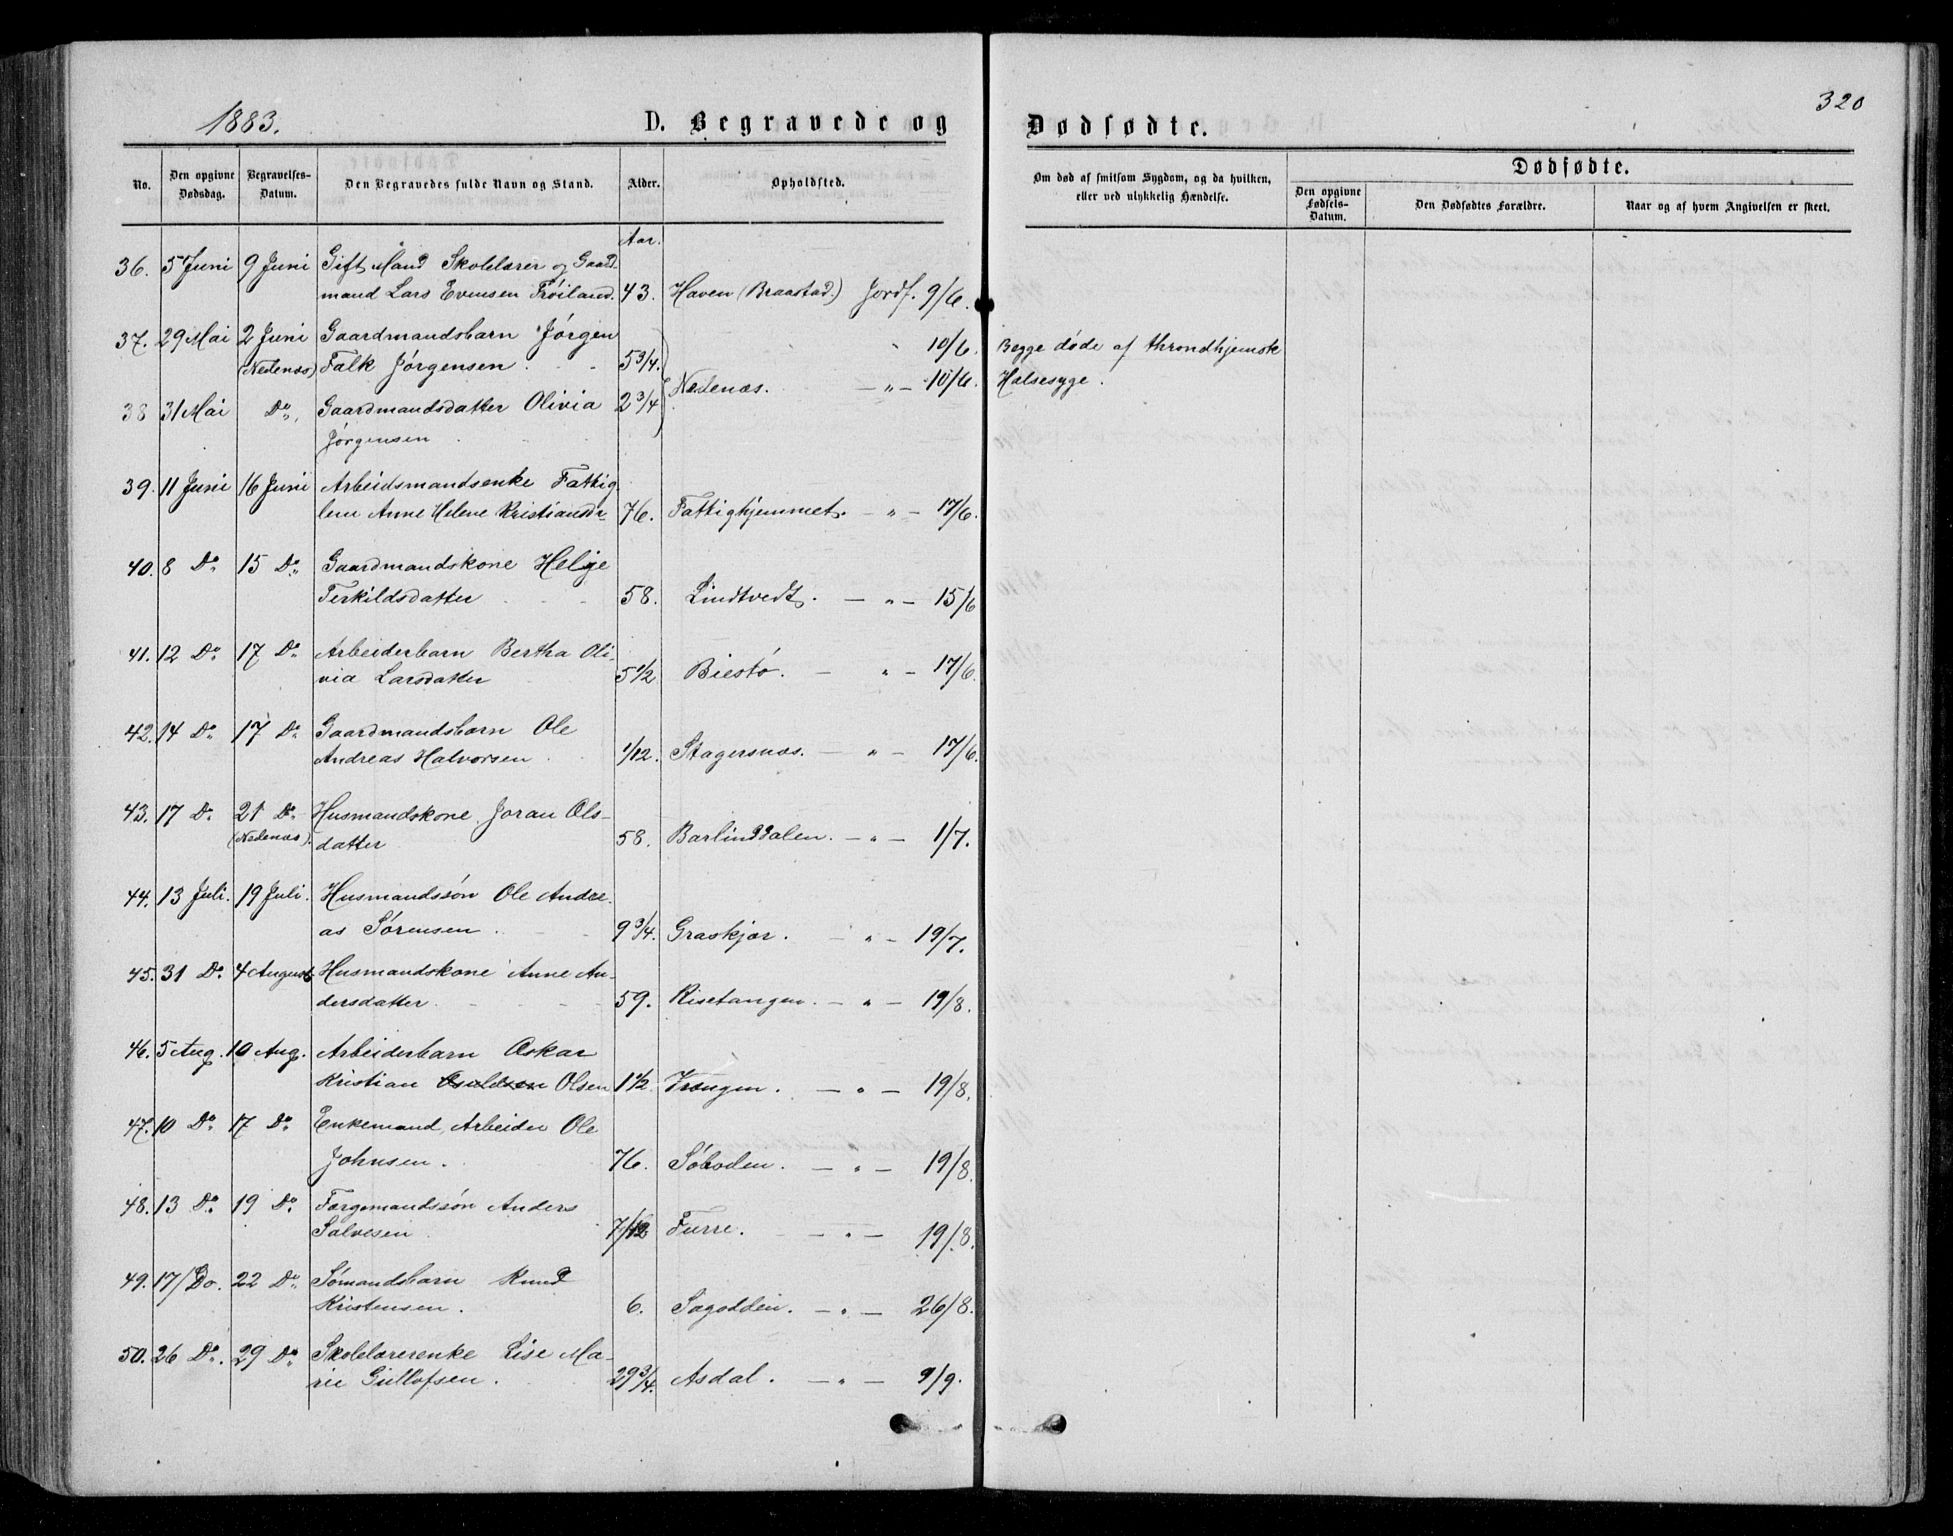 1883.
D. Begravede og
Dødfødte.
320
No.
Den opgivne Dødsdag.
Begravelses-Datum.
Den Begravedes fulde Navn og Stand.
Alder.
Opholdsted.
Om død af smitsom Sygdom, og da hvilken, eller ved ulykkelig Hændelse.
Dødfødte.
Den opgivne Fødsels-Datum.
Den Dødfødtes Forældre.
Naar og af hvem Angivelsen er skeet.
Aar.
36. 5 Juni 9 Juni Gift Mand Skolelærer og Gaard-
mand Lars Evensen Frøiland. 43. Haven (Braastad.) Jordf. 9/6.
37. 29 Mai 2 Juni Gaardmandsbarn Jørgen 10/6. Begge døde af throndhjemsk
(Nedenæs) Falk Jørgensen. 5 3/4.
Nedenæs. — " — 10/6. Halsesyge.
38 31 Mai Do, Gaardmandsdatter Olivia 2 3/4
Jørgensen
39. 11 Juni 16 Juni Arbeidsmandsenke Fattig
lem Anne Helene Kristiansdr 76. Fattighjemmet. — " — 17/6.
40. 8 Do 15 Do Gaardmandskone Helge
Terkildsdatter 58. Lindtvedt. — " — 15/6
41. 12 Do 17 Do Arbeiderbarn Bertha Oli-
via Larsdatter 5 1/2 Biestø. — " — 17/6.
42. 14 Do 17 Do Gaardmandsbarn Ole
Andreas Halvorsen 1/12. Stagersnæs. — " — 17/6.
43. 17 Do 21 Do Husmandskone Joran Ols-
(Nedenæs). datter 58. Barlinddalen. — " — 1/7.
44. 13 Juli. 19 Juli. Husmandssøn Ole Andre-
as Sørensen. 9 3/4. Graskjær. — " — 19/7.
45. 31 Do 4 August. Husmandskone Anne An-
dersdatter. 59. Risetangen. — " — 19/8.
46. 5 Aug. 10 Aug. Arbeiderbarn Oskar
Kristian Olsen 1 1/2. Vrængen. — " — 19/8.
47. 10 Do 17 Do Enkemand, Arbeider Ole
Johnsen. 76. Søboden. — " — 19/8.
48. 13 Do 19 Do Færgemandssøn Anders
Salvesen 7/12 Furre. — " — 19/8.
49. 17/Do. 22 Do Sømandsbarn Knud
Kristensen. 6. Sagodden. — " — 26/8.
50. 26 Do. 29 Do Skolelærerenke Lise Ma-
rie Gullofsen. 29 3/4. Asdal. — " — 9/9.